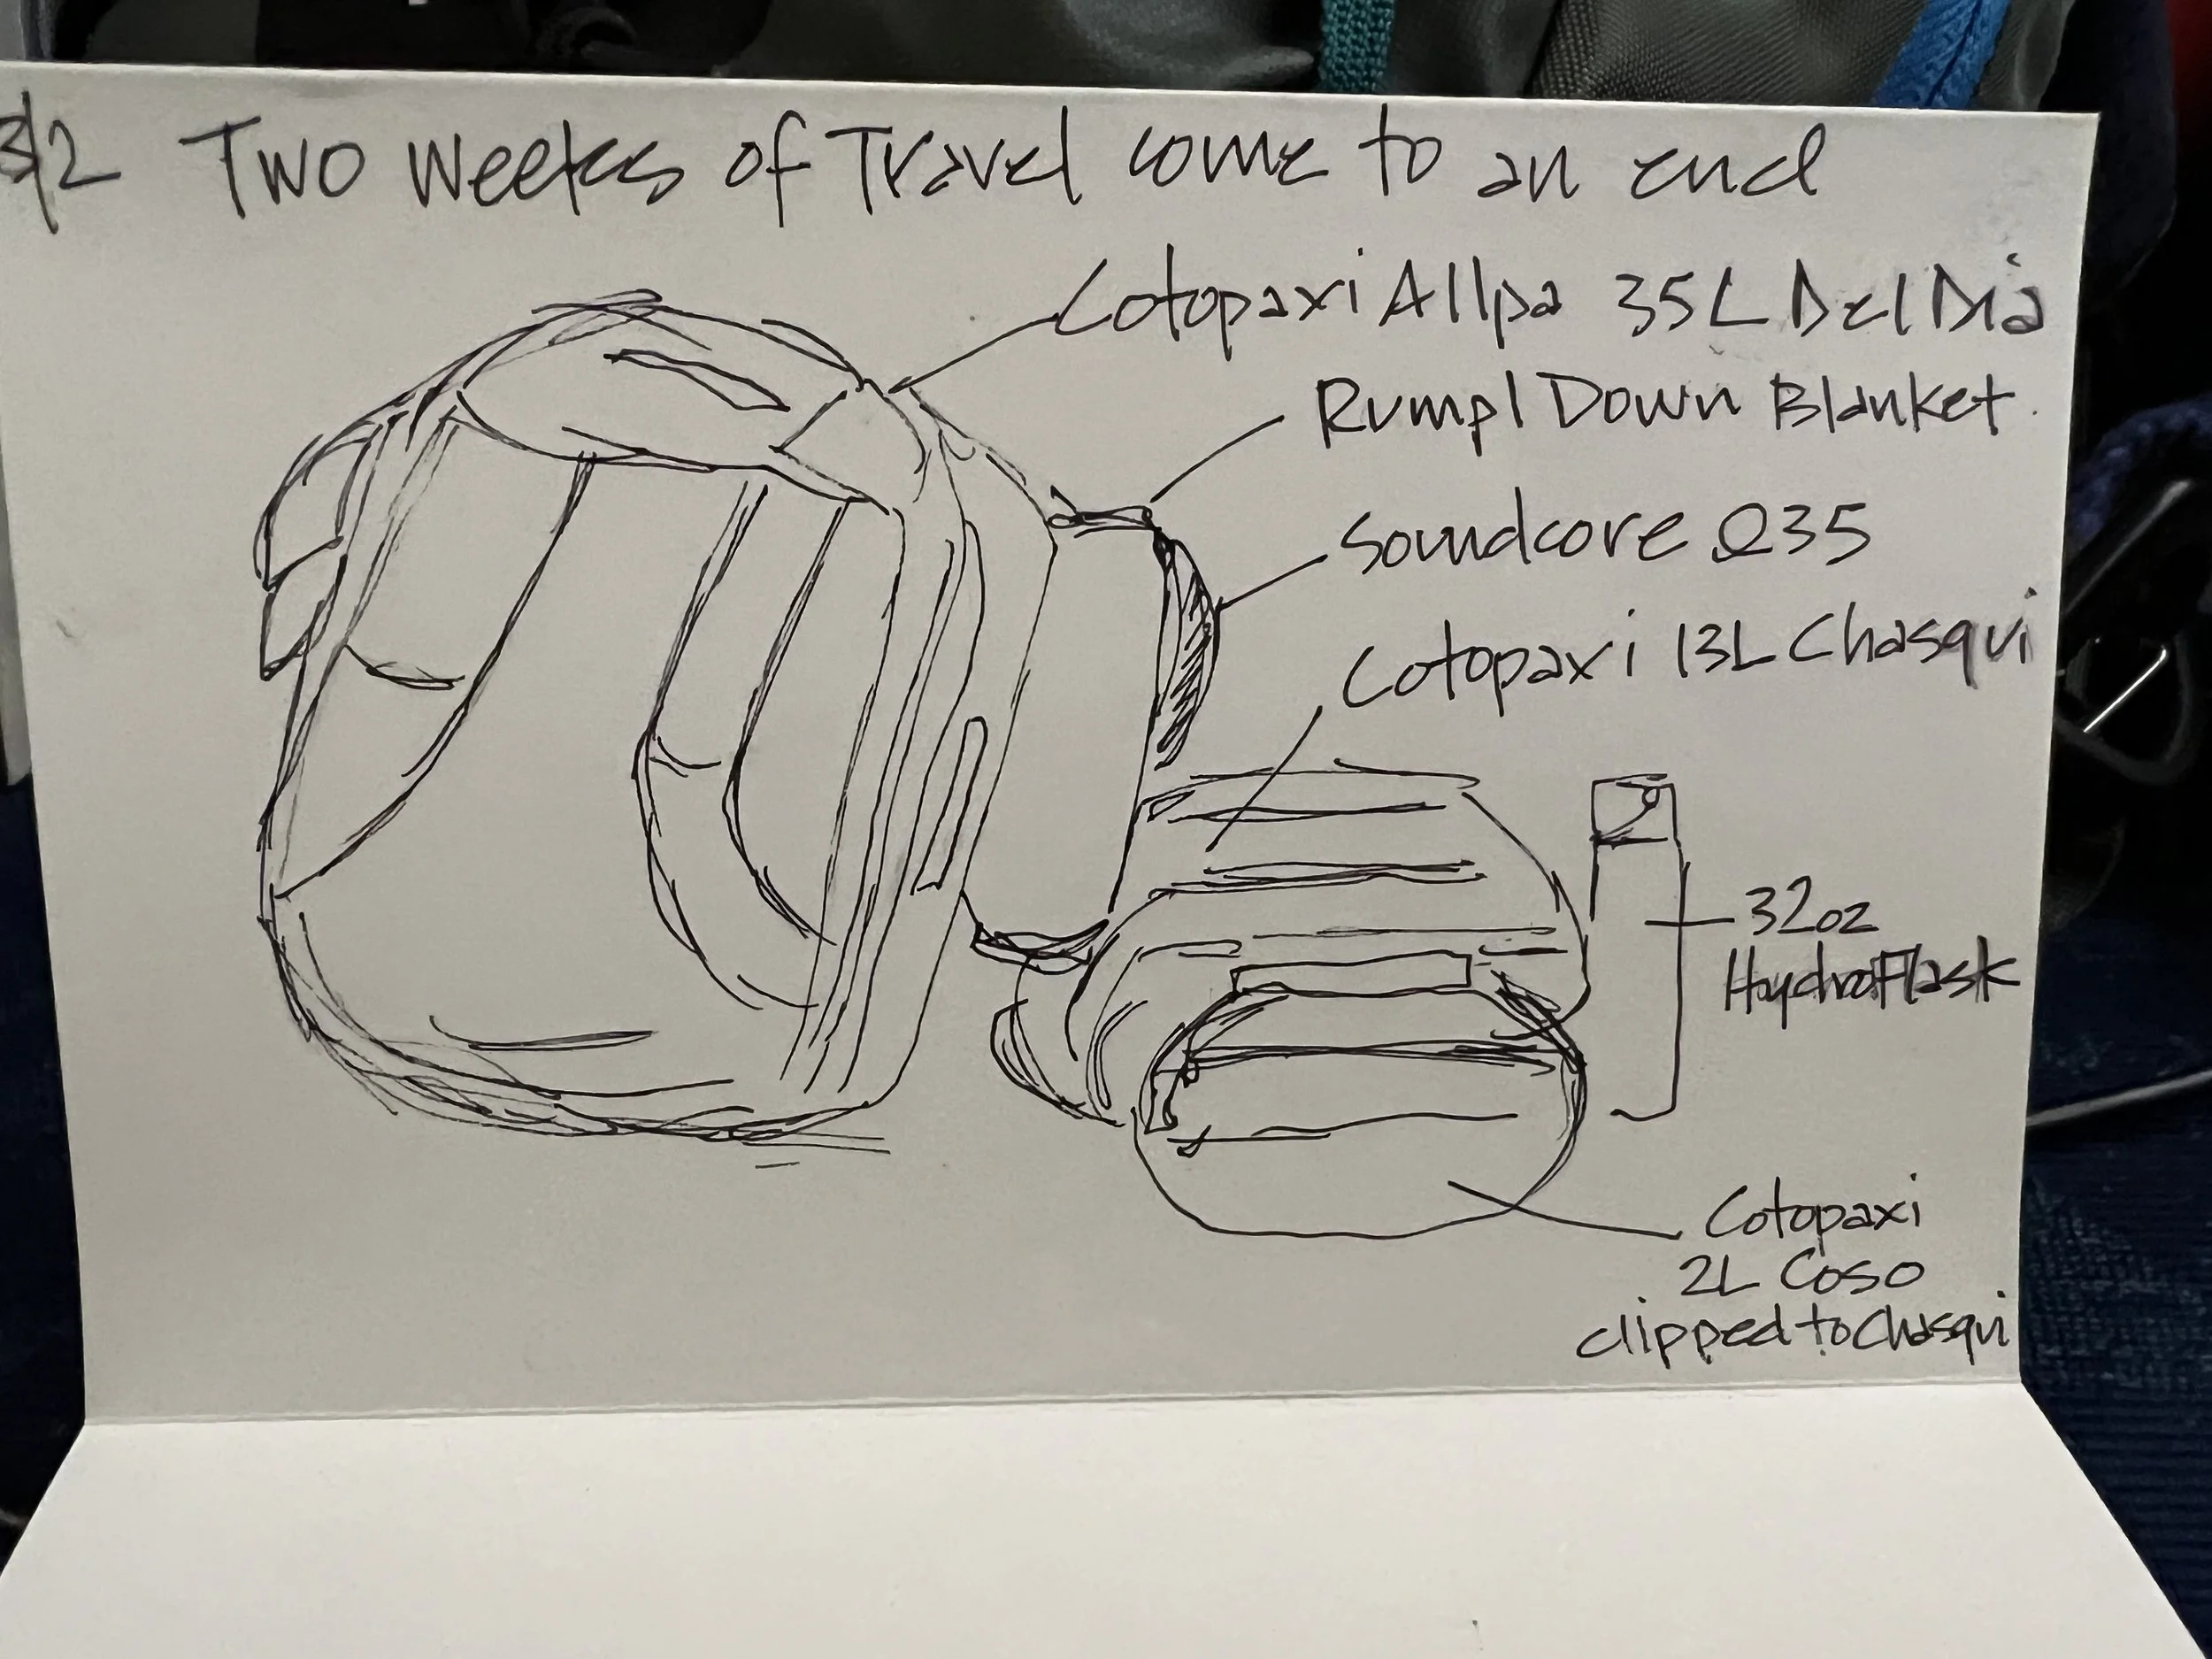 3/2 Two Weeks of Travel come to an end
Cotopaxi Allpa 35L Del Dia
Rumpl Down Blanket
Soundcore Q35
Cotopaxi 13L Chasqui
32oz
HydroFlask
Cotopaxi
2L Coso
clipped to Chasqui